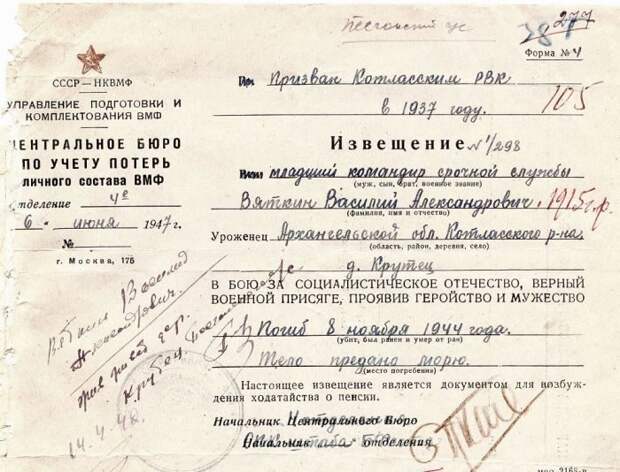 277
Форма № 4
СССР — НКВМФ
УПРАВЛЕНИЕ ПОДГОТОВКИ И
КОМПЛЕКТОВАНИЯ ВМФ
ЦЕНТРАЛЬНОЕ БЮРО
ПО УЧЕТУ ПОТЕРЬ
личного состава ВМФ
отделение 4е
6 июня 1947 г.
№
г. Москва, 176
Призван Котласским РВК
в 1937 году.
105
Извещение № 1/298
младший командир срочной службы
(муж, сын, брат, военное звание)
Вяткин Василий Александрович. 1915 г.р.
(фамилия, имя и отчество)
Уроженец Архангельской обл. Котласского р-на
(область, район, деревня, село)
д. Крутец
В БОЮ ЗА СОЦИАЛИСТИЧЕСКОЕ ОТЕЧЕСТВО, ВЕРНЫЙ
ВОЕННОЙ ПРИСЯГЕ, ПРОЯВИВ ГЕРОЙСТВО И МУЖЕСТВО
Погиб 8 ноября 1944 года.
(убит, был ранен и умер от ран)
Тело предано морю.
(место погребения)
Настоящее извещение является документом для возбуж-
дения ходатайства о пенсии.
Начальник Центрального Бюро
Начальник отделения
Вяткин Василий
Александрович.